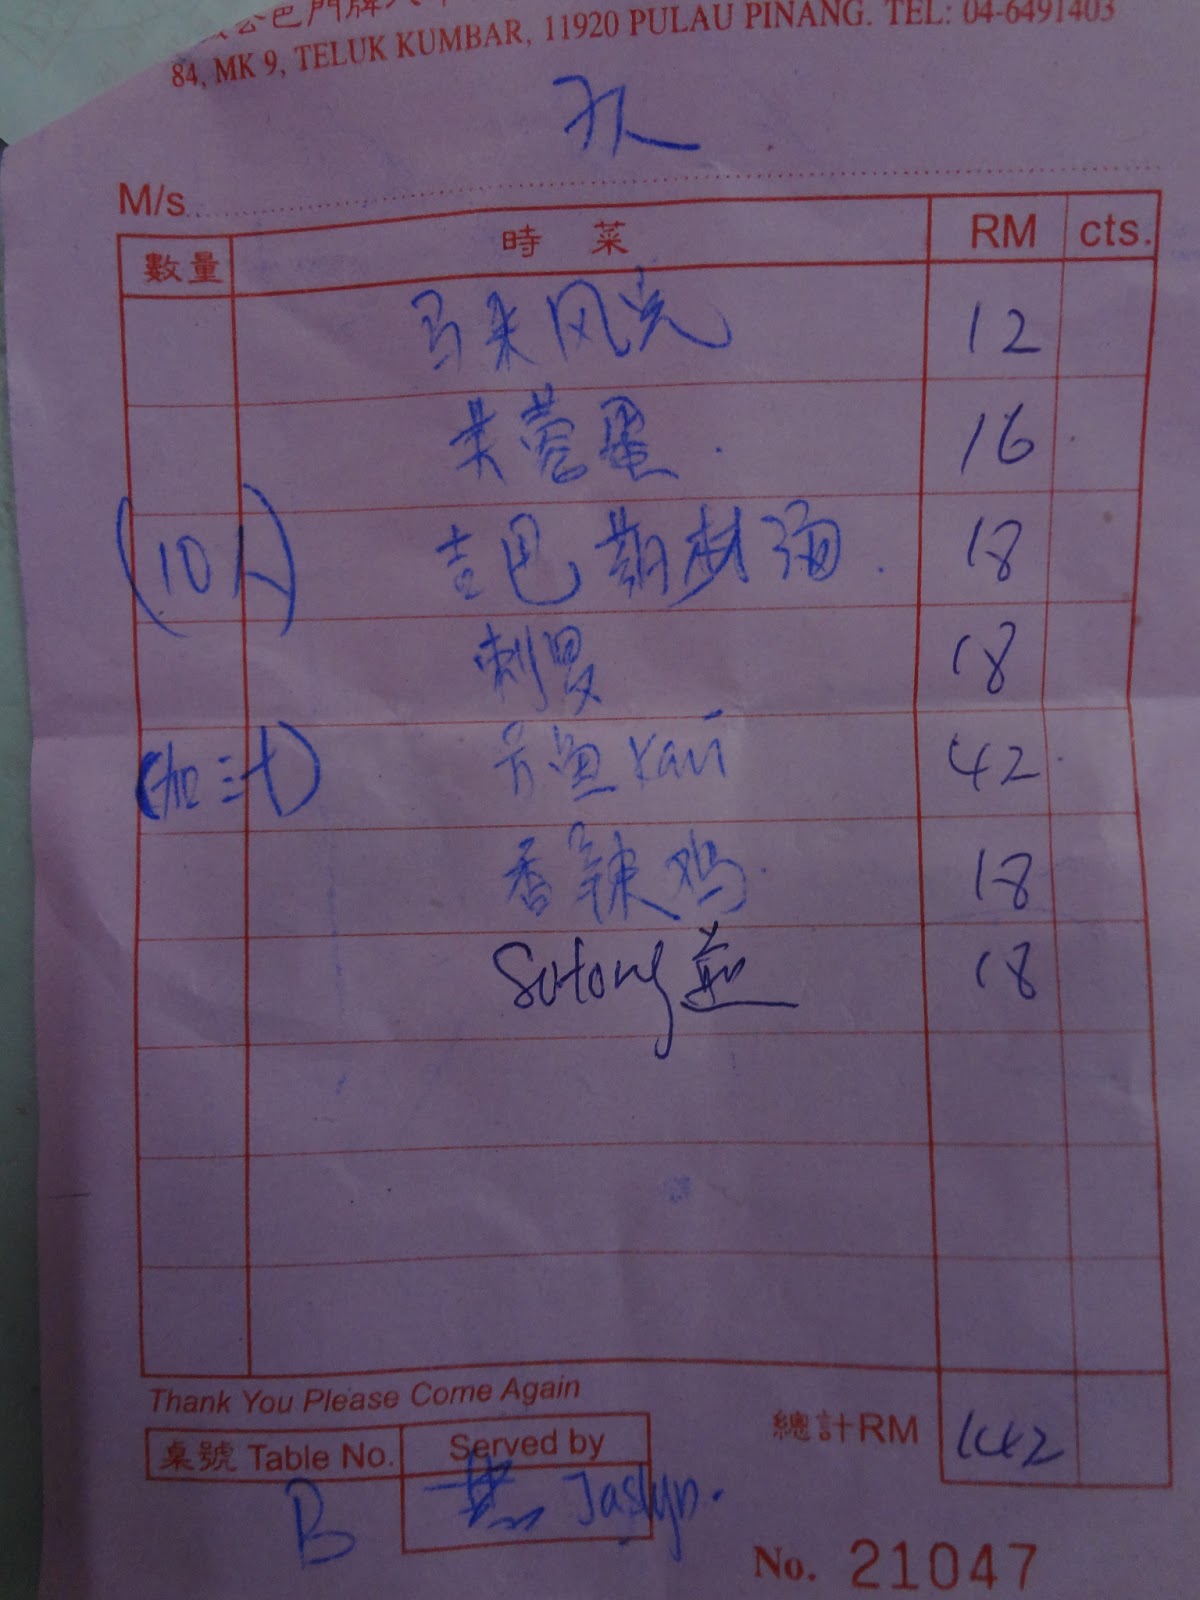 公巴門牌
84, MK 9, TELUK KUMBAR, 11920 PULAU PINANG. TEL: 04-6491403
M/s
數量 時菜 RM cts.
马来风光 12
芙蓉蛋 16
(10人) 吉巴 18
18
(加汁) 方鱼 Kari 42
香辣鸡 18
Sotong 18
Thank You Please Come Again
總計RM 142
桌號 Table No. Served by
B Jaslyn.
No. 21047